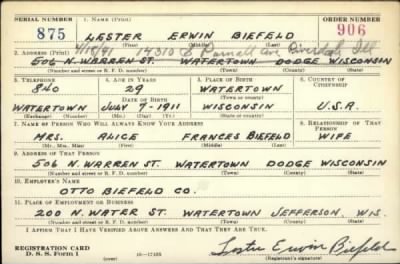 SERIAL NUMBER 1. NAME (Print) ORDER NUMBER
875 LESTER ERWIN BIEFELD 906
(First) (Middle) (Last)
2. ADDRESS (Print) 14310 Parnell Ave Riverdale Ill
506 N. WARREN ST. WATERTOWN DODGE WISCONSIN
(Number and street or R. F. D. number) (Town) (County) (State)
3. TELEPHONE 4. AGE IN YEARS 5. PLACE OF BIRTH 6. COUNTRY OF CITIZENSHIP
840 29 WATERTOWN
DATE OF BIRTH (Town or county)
WATERTOWN JULY 7-1911 WISCONSIN U.S.A.
(Exchange) (Number) (Mo.) (Day) (Yr.) (State or country)
7. NAME OF PERSON WHO WILL ALWAYS KNOW YOUR ADDRESS 8. RELATIONSHIP OF THAT PERSON
MRS. ALICE FRANCES BIEFELD WIFE
(Mr., Mrs., Miss) (First) (Middle) (Last)
9. ADDRESS OF THAT PERSON
506 N. WARREN ST. WATERTOWN DODGE WISCONSIN
(Number and street or R. F. D. number) (Town) (County) (State)
10. EMPLOYER'S NAME
OTTO BIEFELD CO.
11. PLACE OF EMPLOYMENT OR BUSINESS
200 N. WATER ST. WATERTOWN JEFFERSON, WIS.
(Number and street or R. F. D. number) (Town) (County) (State)
I AFFIRM THAT I HAVE VERIFIED ABOVE ANSWERS AND THAT THEY ARE TRUE.
REGISTRATION CARD
D. S. S. FORM 1 (over) 16—17105 Lester Erwin Biefeld
(Registrant's signature)